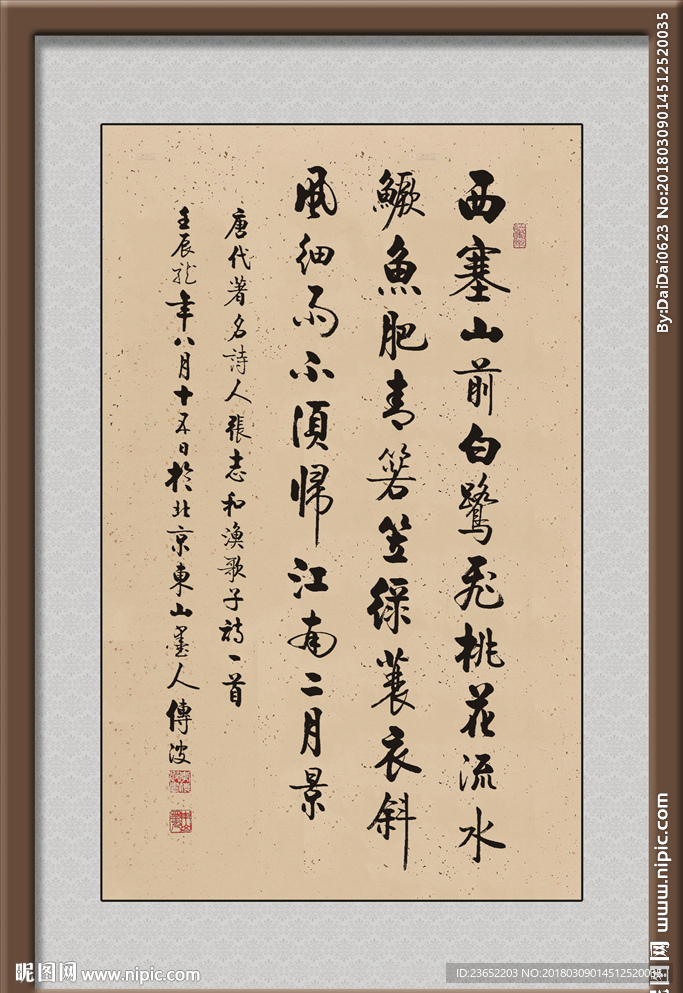 西塞山前白鷺飛桃花流水
鱖魚肥青箬笠緑蓑衣斜
風細雨不須帰江南二月景
唐代著名詩人張志和漁歌子詩一首
壬辰龍年八月十五日於北京東山墨人傳波
By:DaiDai0623 No:20180309014512520035
昵图网 www.nipic.com
昵图网 www.nipic.com
ID:23652203 NO:20180309014512520035